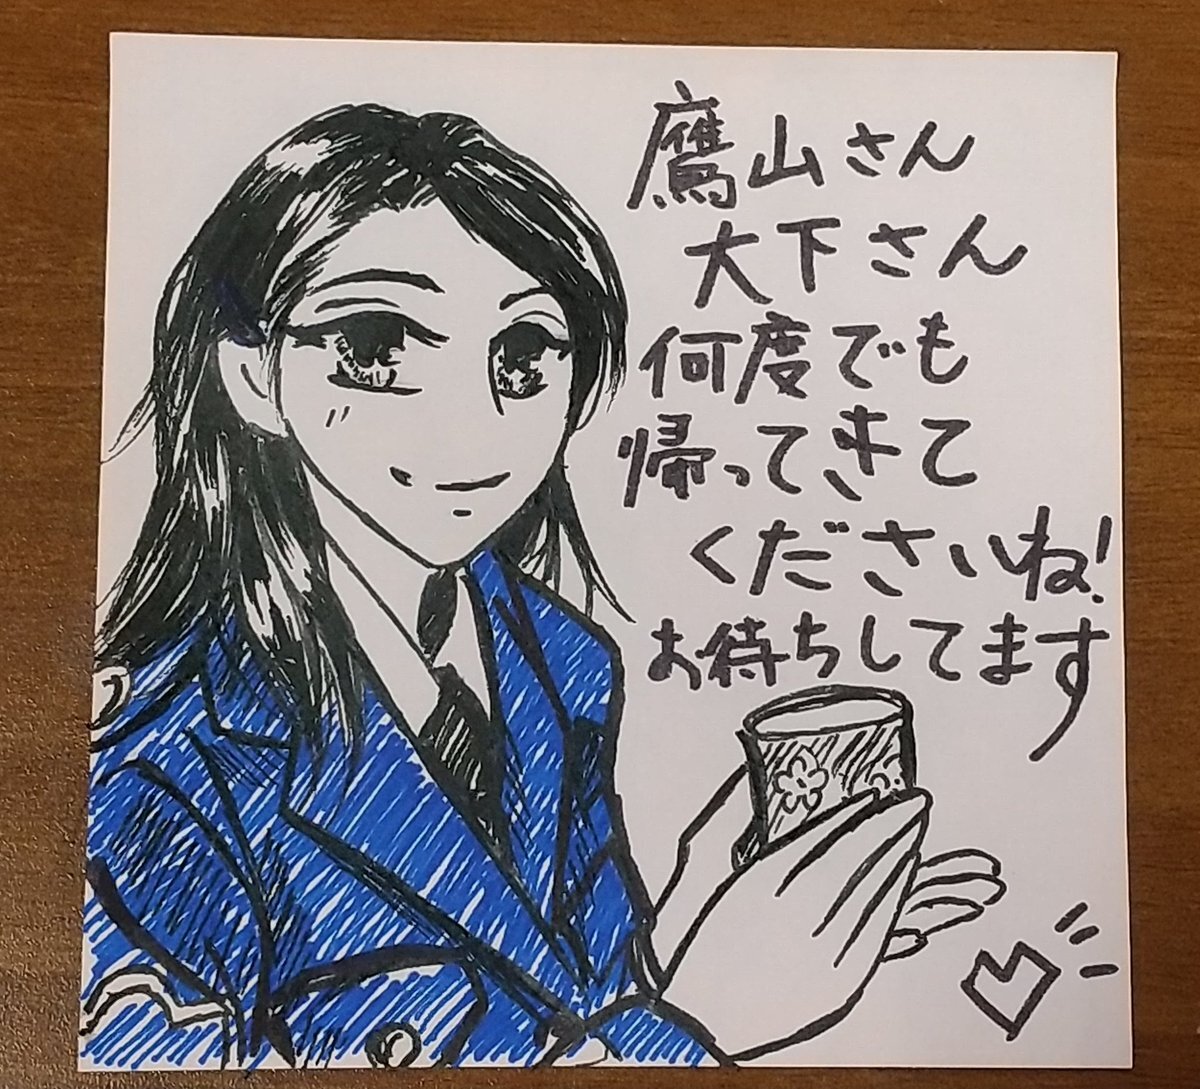 鷹山さん
大下さん
何度でも
帰ってきて
くださいね!
お待ちしてます